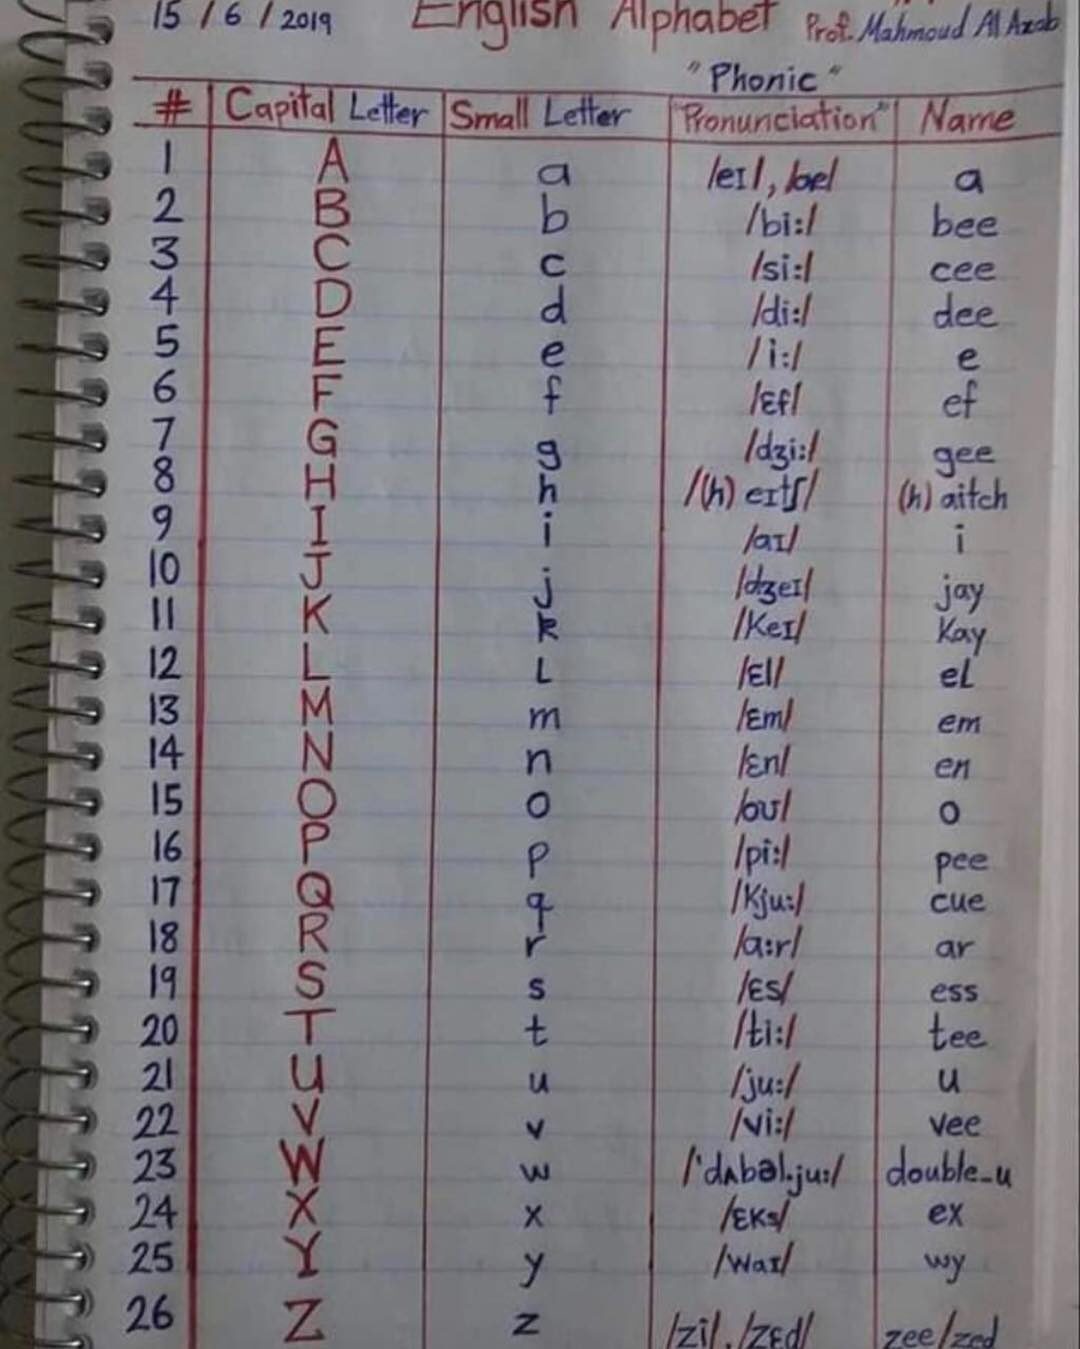 15 / 6 / 2019 English Alphabet Prof. Mahmoud Al Azab
"Phonic"
# Capital Letter Small Letter "Pronunciation" Name
1 A a /eɪ/, /æ/ a
2 B b /bi:/ bee
3 C c /si:/ cee
4 D d /di:/ dee
5 E e /i:/ e
6 F f /ɛf/ ef
7 G g /dʒi:/ gee
8 H h /(h) eɪtʃ/ (h) aitch
9 I i /aɪ/ i
10 J j /dʒeɪ/ jay
11 K k /Keɪ/ Kay
12 L L /ɛl/ eL
13 M m /ɛm/ em
14 N n /ɛn/ en
15 O o /oʊ/ o
16 P p /pi:/ pee
17 Q q /Kju:/ cue
18 R r /ɑ:r/ ar
19 S s /ɛs/ ess
20 T t /ti:/ tee
21 U u /ju:/ u
22 V v /vi:/ vee
23 W w /'dʌbəl.ju:/ double_u
24 X x /ɛKs/ ex
25 Y y /waɪ/ wy
26 Z z /zi/, /zɛd/ zee/zed